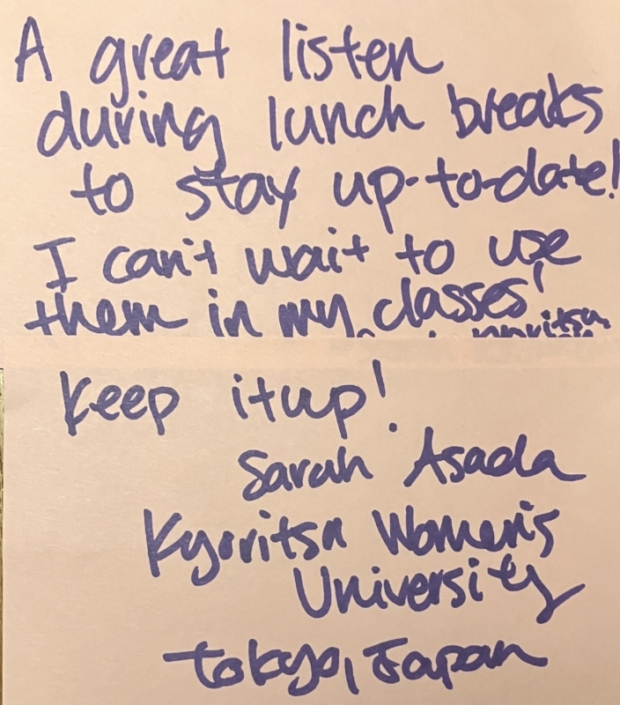 A great listen
during lunch breaks
to stay up-to-date!
I can't wait to use
them in my classes!
Keep it up!
Sarah Asada
Kyoritsu Women's
University
Tokyo, Japan